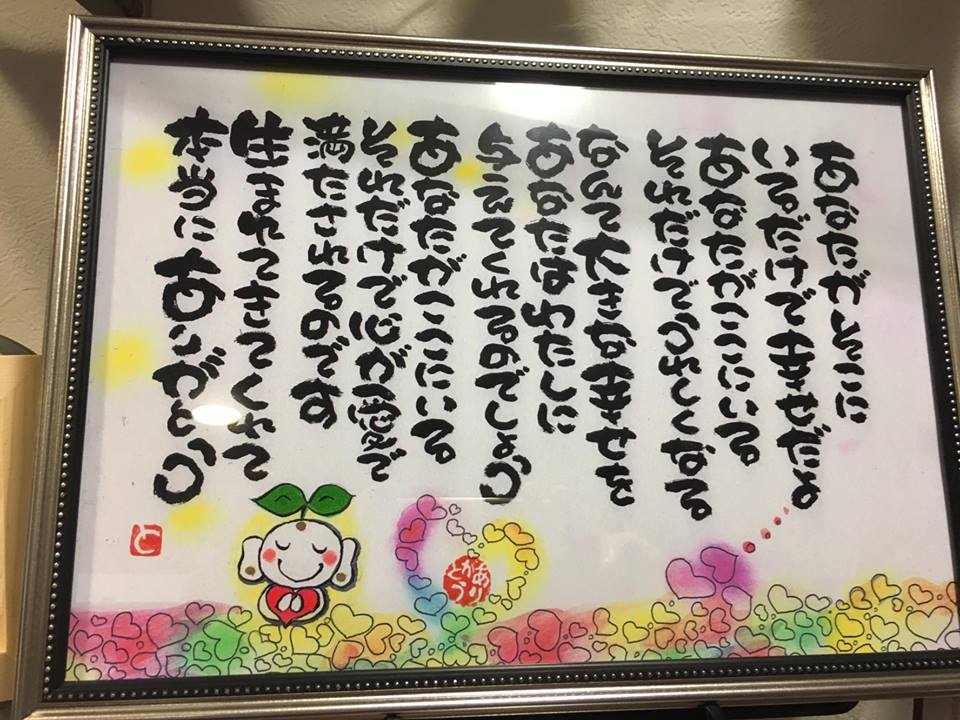 あなたがそこに
いてるだけで幸せだよ
あなたがここにいる
それだけでうれしくなる
なんて大きな幸せを
あなたはわたしに
与えてくれるのでしょう
あなたがここにいる
それだけで心が愛で
満たされるのです
生まれてきてくれて
本当にありがとう
ありがとう
と